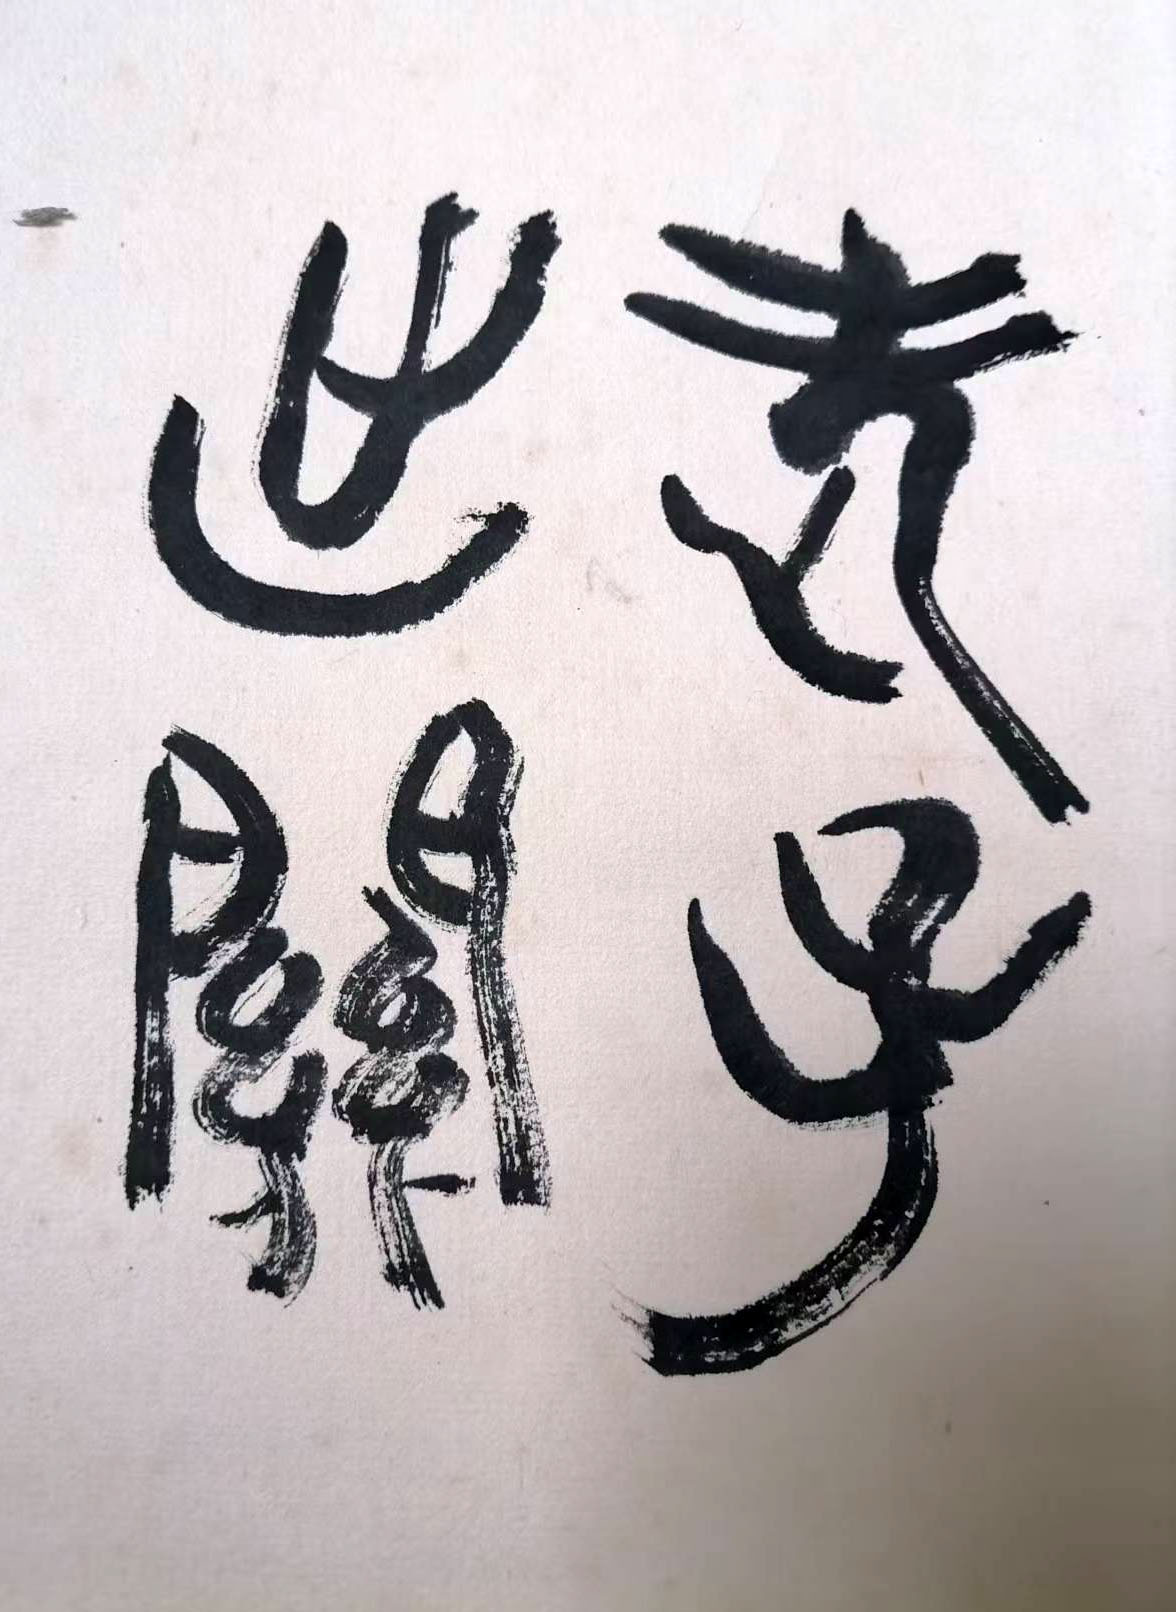 老子
出關